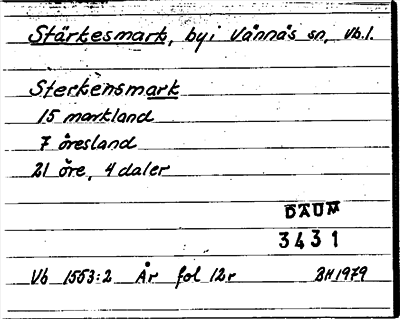 Stärkesmark, by i Vännäs sn, Vb.l.
Sterkensmark
15 markland
7 öresland
21 öre, 4 daler
DAUM
3431
Vb 1553:2 År fol 12r BH 1979